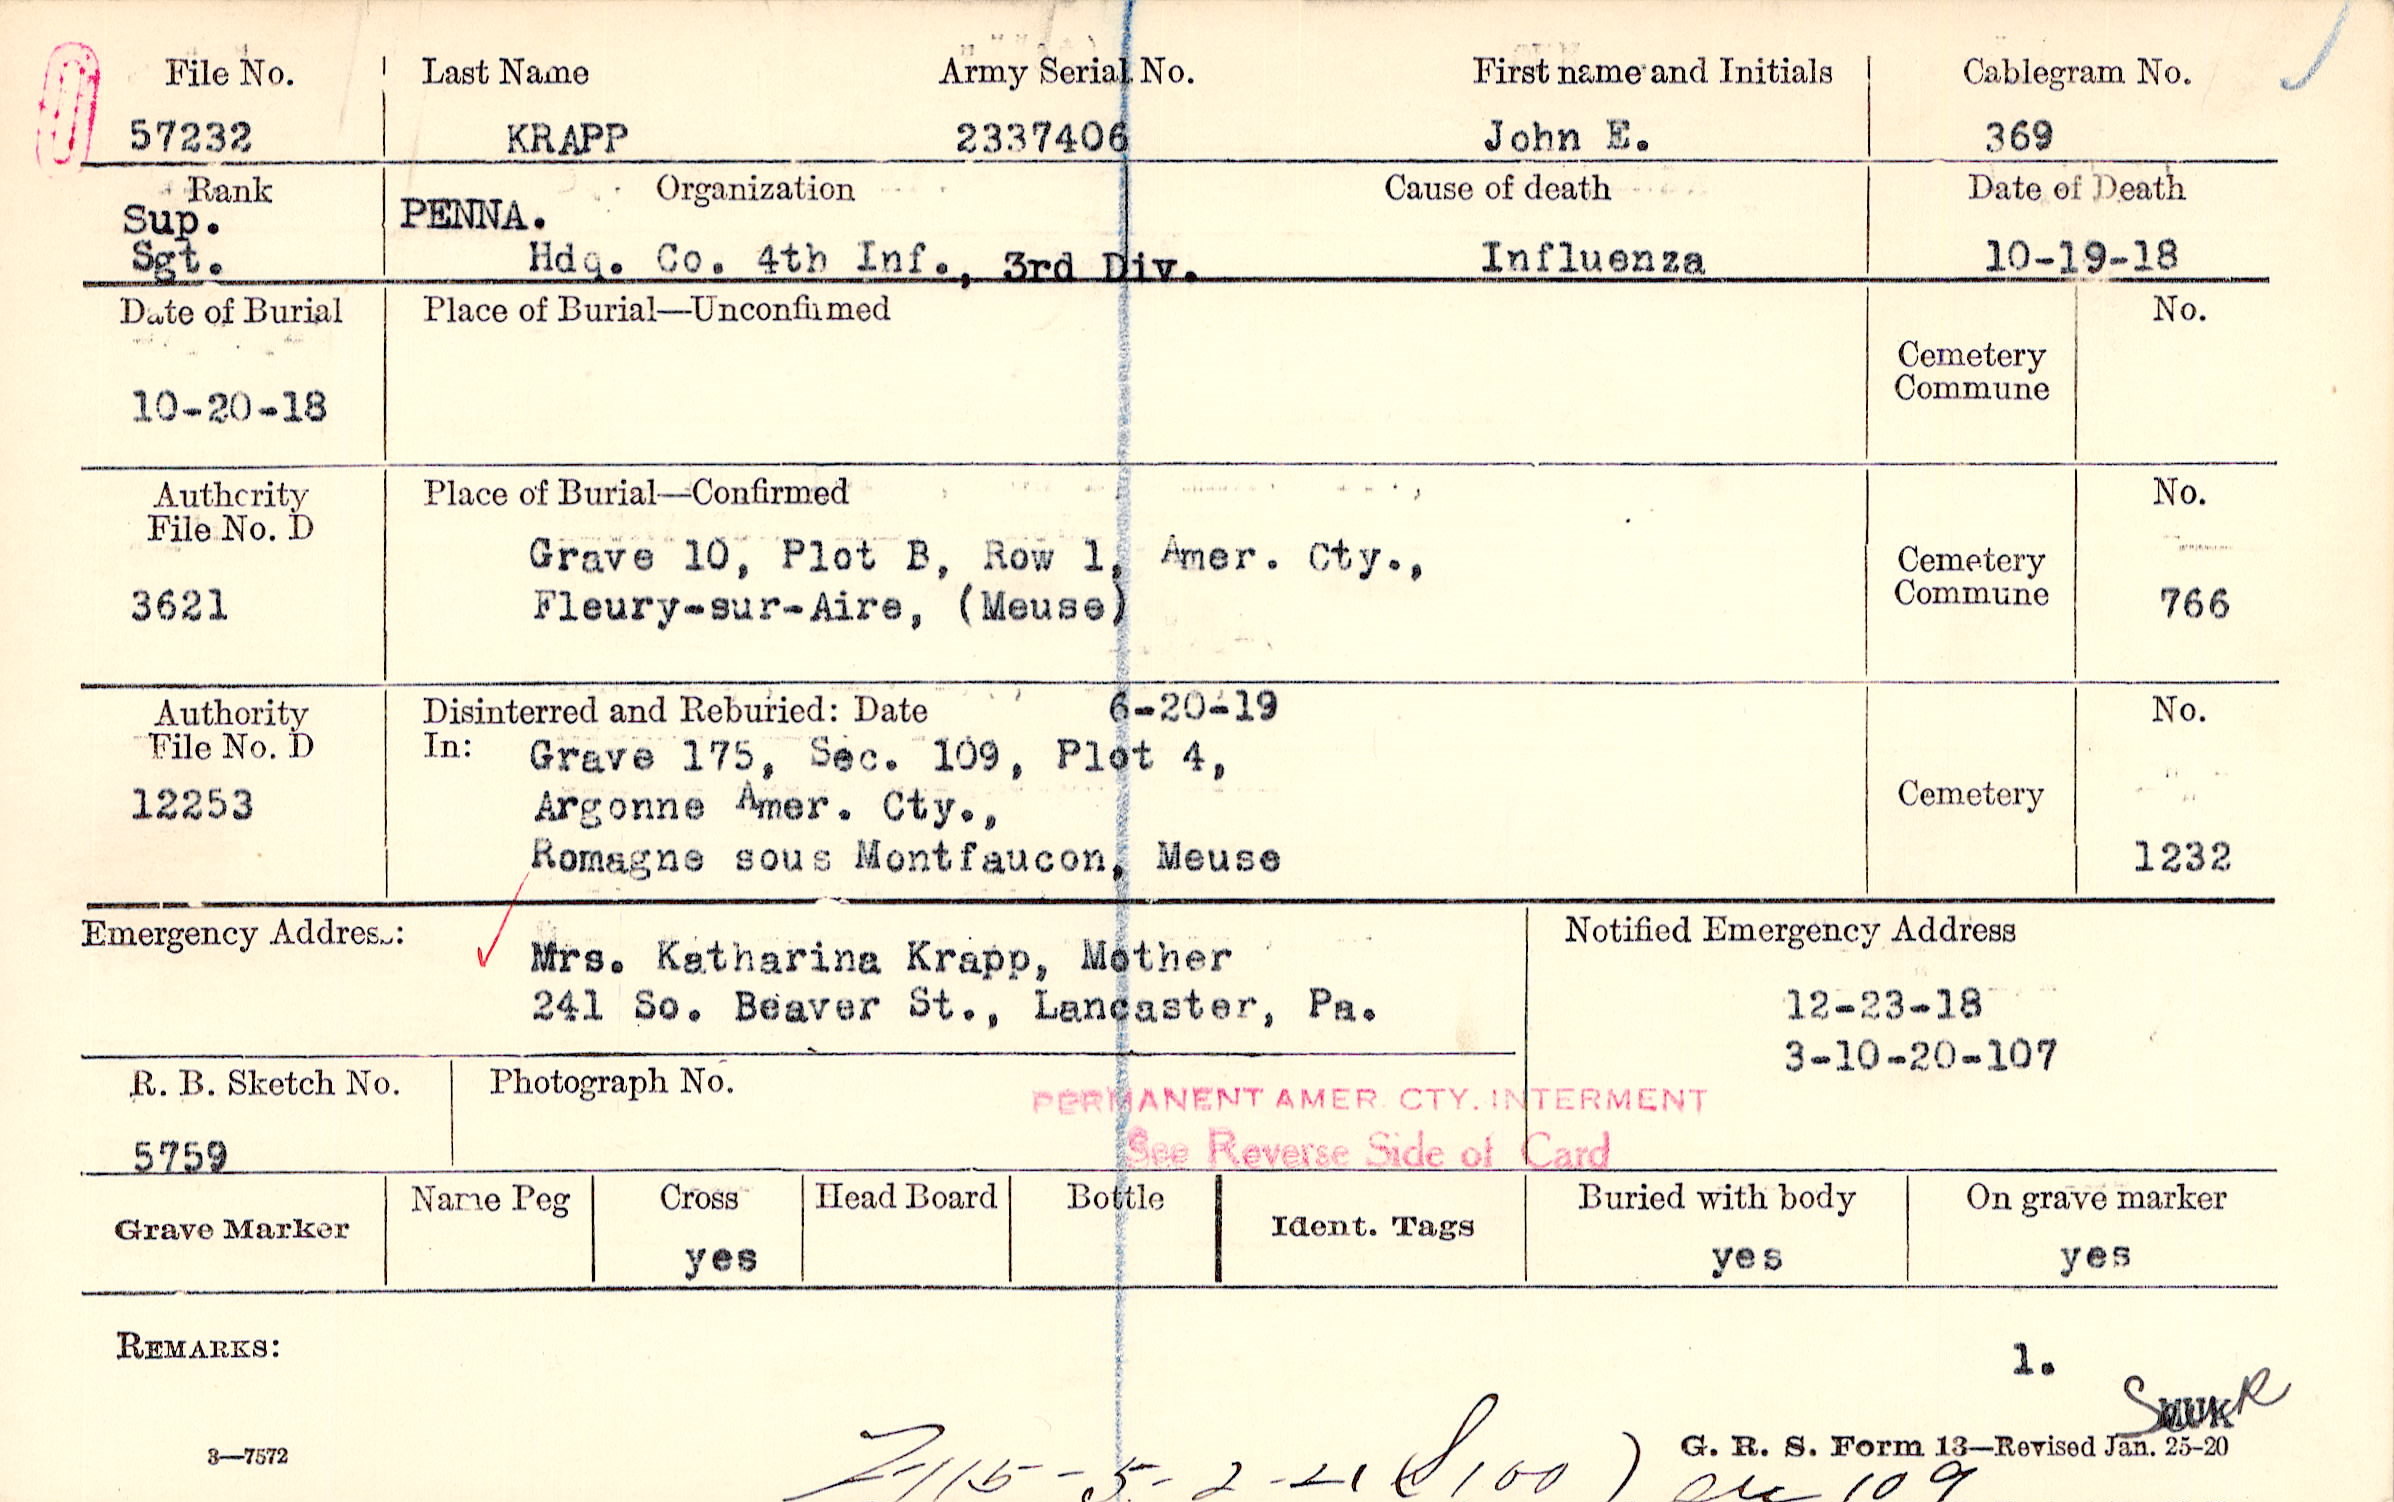 File No. Last Name Army Serial No. First name and Initials Cablegram No.
57232 KRAPP 2337406 John E. 369
Rank Organization Cause of death Date of Death
Sup. PENNA.
Sgt. Hdq. Co. 4th Inf., 3rd Div. Influenza 10-19-18
Date of Burial Place of Burial—Unconfirmed No.
Cemetery
Commune
10-20-18
Authority Place of Burial—Confirmed No.
File No. D
Grave 10, Plot B, Row 1, Amer. Cty., Cemetery
3621 Fleury-sur-Aire, (Meuse) Commune 766
Authority Disinterred and Reburied: Date 6-20-19 No.
File No. D In: Grave 175, Sec. 109, Plot 4,
12253 Argonne Amer. Cty., Cemetery
Romagne sous Montfaucon, Meuse 1232
Emergency Address: Notified Emergency Address
Mrs. Katharina Krapp, Mother
241 So. Beaver St., Lancaster, Pa. 12-23-18
3-10-20-107
R. B. Sketch No. Photograph No.
PERMANENT AMER. CTY. INTERMENT
5759 See Reverse Side of Card
Name Peg Cross Head Board Bottle Buried with body On grave marker
Grave Marker Ident. Tags
yes yes yes
REMARKS:
1.
3—7572 G. R. S. Form 13—Revised Jan. 25-20
109